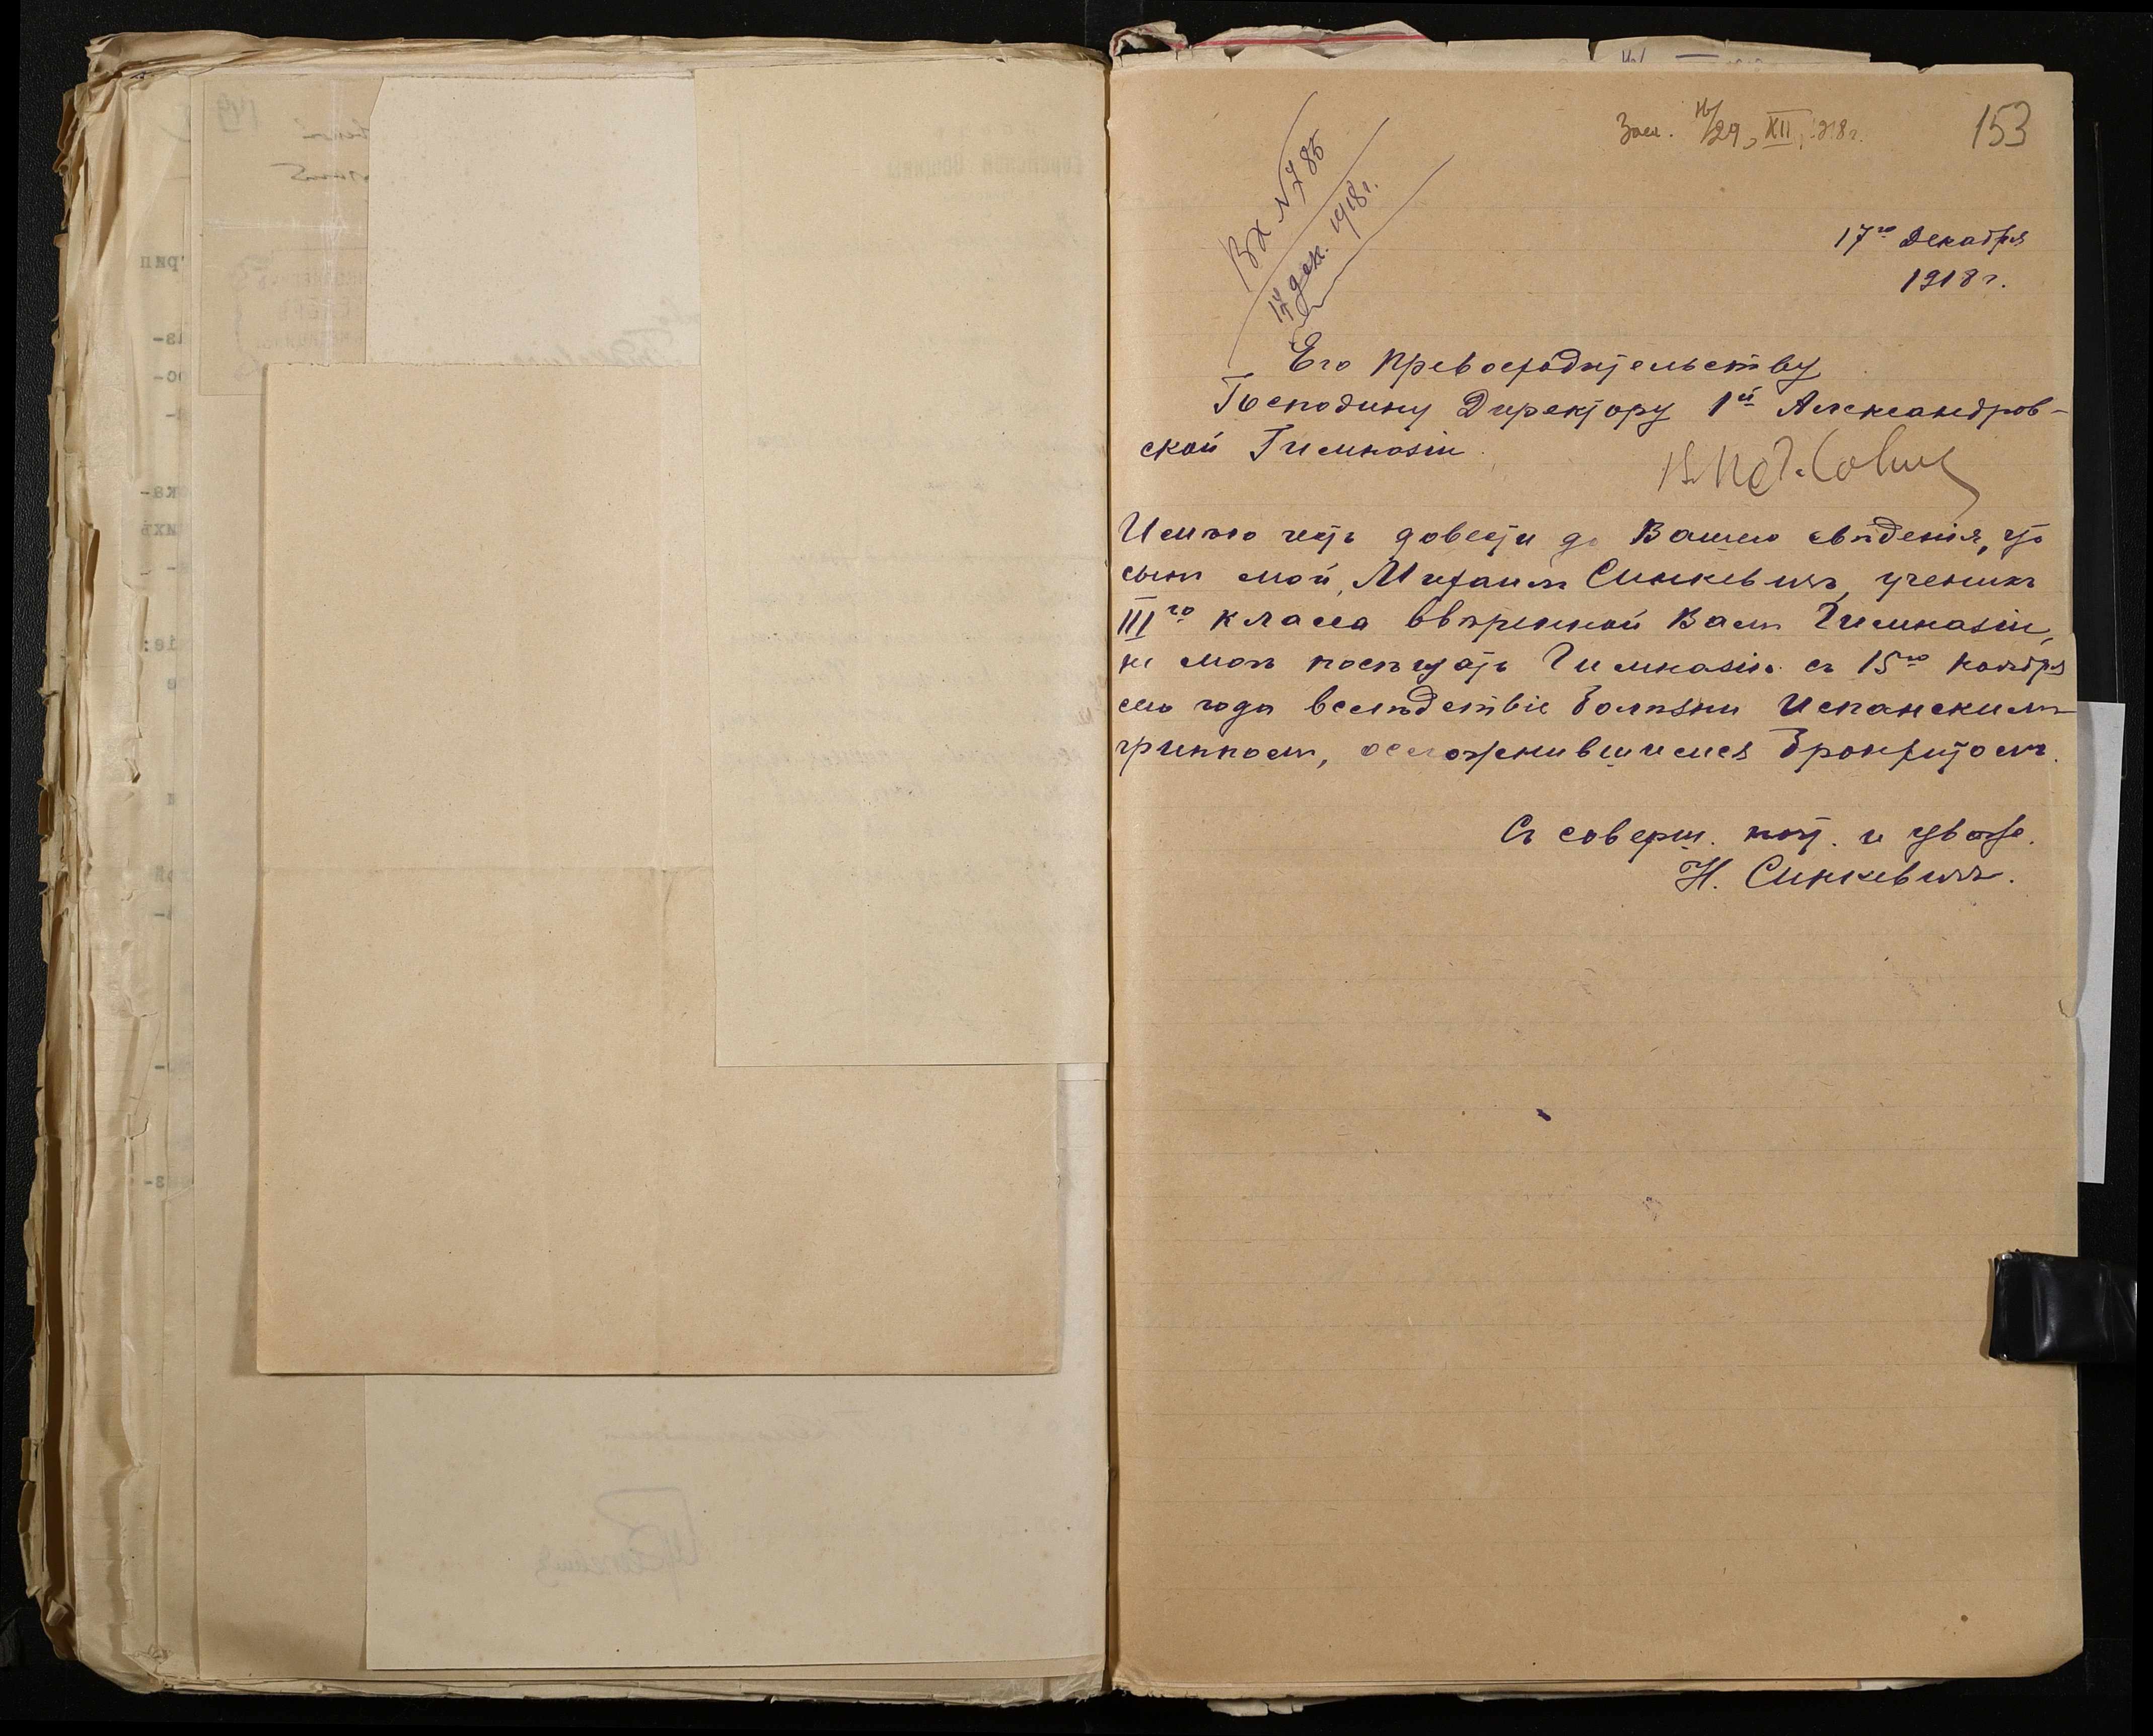 153
Зас. 16/29, XII, 1918 г.
Вх №785
17 дек. 1918 г.
17го Декабря
1918 г.
Его Превосходительству
Господину Директору 1й Александров-
ской Гимназіи
Имѣю честь довести до Вашего свѣденія, что
сынъ мой, Михаилъ Синкевичъ, ученикъ
IIIго класса ввѣренной Вамъ Гимназіи,
не могъ посѣщать Гимназію съ 15го ноября
сего года вслѣдствіе болѣзни Испанскимъ
гриппомъ, осложнившимся бронхитомъ.
Съ соверш. почт. и уваж.
Н. Синкевичъ.